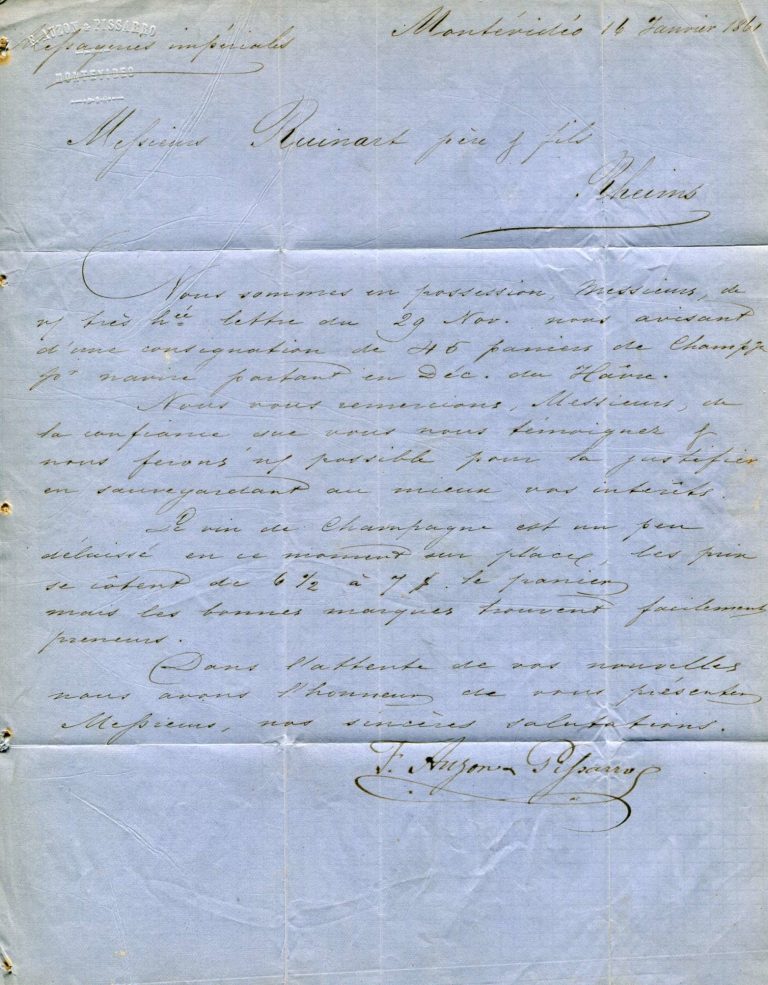 F. AUZON & PISSARRO
MONTEVIDEO
Messageries impériales
Montévidéo 16 Janvier 1861
Messieurs Ruinart père & fils
Rheims
Nous sommes en possession, Messieurs, de
v/ très hée lettre du 29 Nov. nous avisant
d'une consignation de 45 paniers de Champge
pr navire partant en Déc. du Hâvre.
Nous vous remercions, Messieurs, de
la confiance que vous nous temoignez &
nous ferons n/ possible pour la justifier
en sauvegardant au mieux vos intérêts.
Le vin de Champagne est un peu
délaissé en ce moment sur place, les prix
se côtent de 6 1/2 à 7 $ le panier
mais les bonnes marques trouvent facilement
preneurs.
Dans l'attente de vos nouvelles
nous avons l'honneur de vous présenter
Messieurs, nos sincères salutations.
F. Auzon & Pissarro